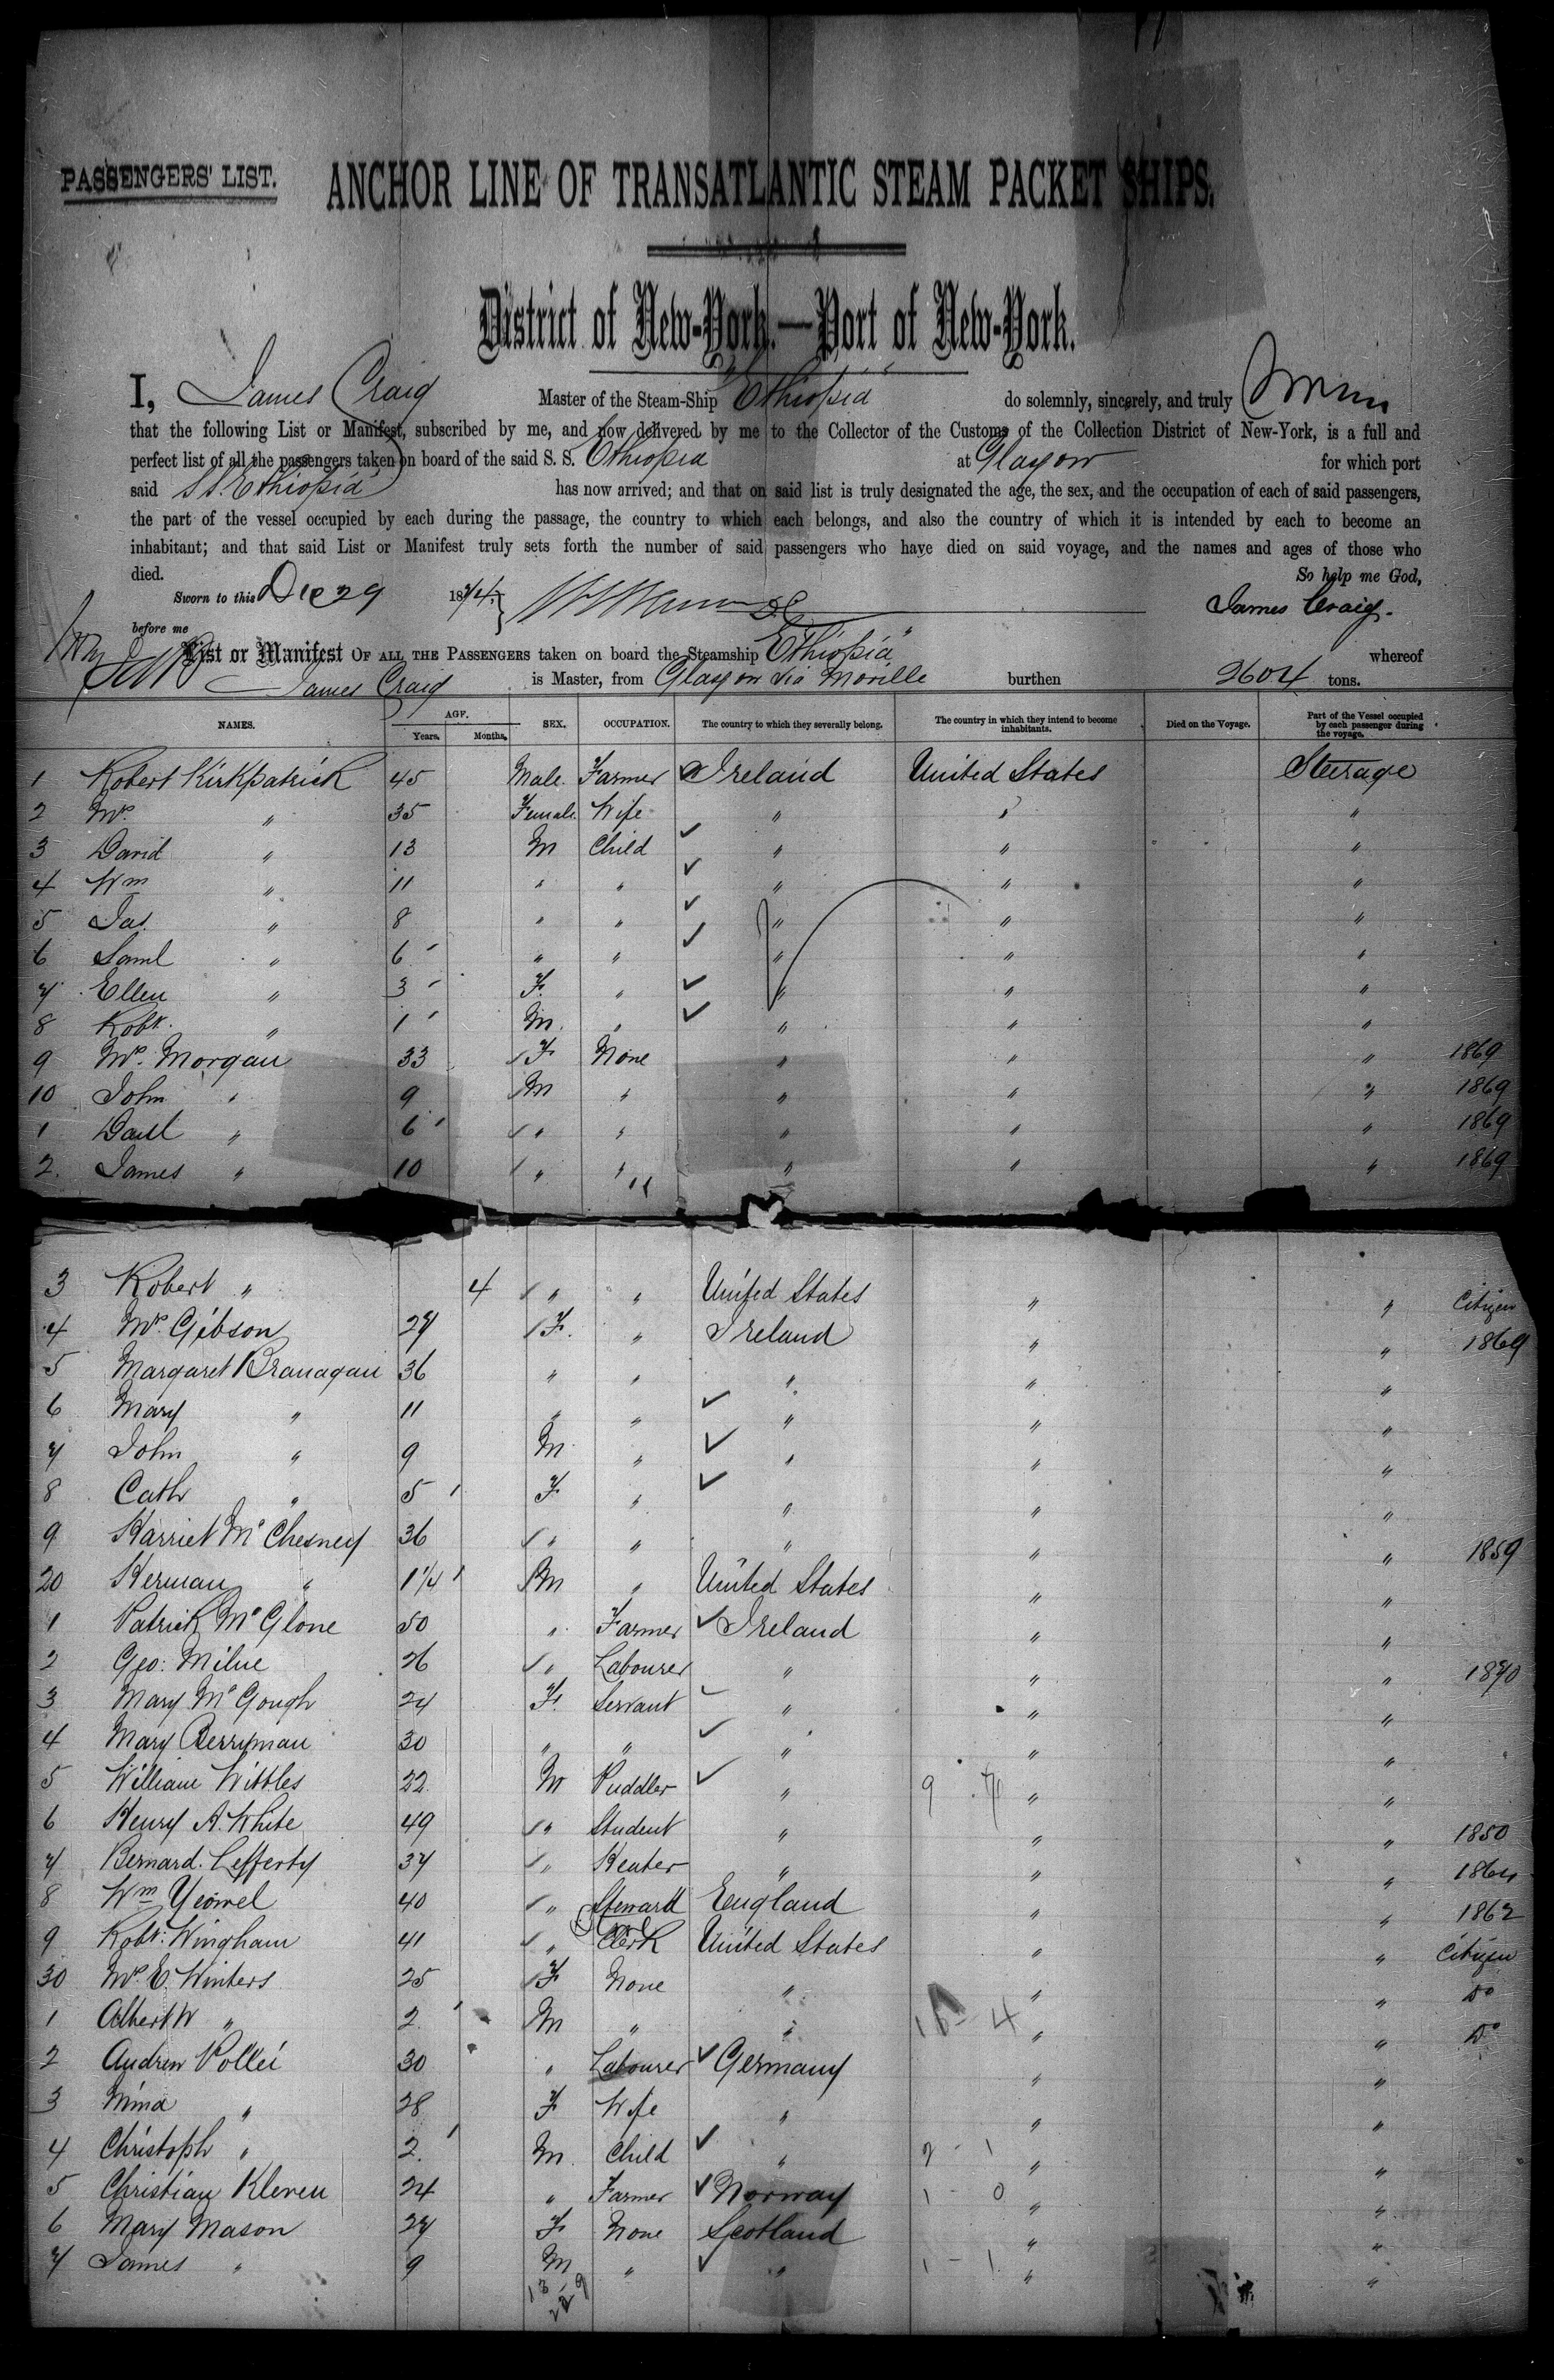 PASSENGERS' LIST.
ANCHOR LINE OF TRANSATLANTIC STEAM PACKET SHIPS.
District of New-York.—Port of New-York.
I, James Craig Master of the Steam-Ship "Ethiopia" do solemnly, sincerely, and truly
that the following List or Manifest, subscribed by me, and now delivered by me to the Collector of the Customs of the Collection District of New-York, is a full and
perfect list of all the passengers taken on board of the said S. S. Ethiopia at Glasgow for which port
said S.S. Ethiopia has now arrived; and that on said list is truly designated the age, the sex, and the occupation of each of said passengers,
the part of the vessel occupied by each during the passage, the country to which each belongs, and also the country of which it is intended by each to become an
inhabitant; and that said List or Manifest truly sets forth the number of said passengers who have died on said voyage, and the names and ages of those who
died. So help me God,
Sworn to this Dec 29 1874 James Craig.
before me
List or Manifest OF ALL THE PASSENGERS taken on board the Steamship "Ethiopia" whereof
James Craig is Master, from Glasgow via Moville burthen 2604 tons.
NAMES. AGE. Years. Months. SEX. OCCUPATION. The country to which they severally belong. The country in which they intend to become inhabitants. Died on the Voyage. Part of the Vessel occupied by each passenger during the voyage.
1 Robert Kirkpatrick 45 Male Farmer Ireland United States Steerage
2 Mrs. " 35 Female Wife " " "
3 David " 13 M Child " " "
4 Wm " 11 " " " " "
5 Jas. " 8 " " " " "
6 Saml " 6 " " " " "
7 Ellen " 3 F. " " " "
8 Robt. " 1 M. " " " "
9 Mrs. Morgan 33 F None " " " 1869
10 John " 9 M " " " " 1869
1 Danl " 6 " " " " " 1869
2. James " 10 " " " " " 1869
3 Robert " 4 " " United States " " Citizen
4 Mrs. Gibson 27 F. " Ireland " " 1869
5 Margaret Branagan 36 " " " " "
6 Mary " 11 " " " " "
7 John " 9 M " " " "
8 Cath " 5 F " " " "
9 Harriet McChesney 36 " " " " " 1859
20 Herman " 1 1/4 M " United States " "
1 Patrick McGlone 50 " Farmer Ireland " "
2 Geo: Milne 26 " Labourer " " " 1870
3 Mary McGough 24 F. Servant " " "
4 Mary Berryman 30 " " " " "
5 William Wittles 22 M Puddler " 9 " "
6 Henry A. White 49 " Student " " " 1850
7 Bernard Lefferty 37 " Heater " " " 1864
8 Wm Yeowel 40 " Steward England " " 1862
9 Robt: Wingham 41 " Clerk United States " " Citizen
30 Mrs E. Winters 25 F None " " " Do
1 Albert W " 2 M " " 4 " " Do
2 Andrew Pollei 30 " Labourer Germany " "
3 Mina " 28 F Wife " " "
4 Christoph " 2. M. Child " 2 - 1 " "
5 Christian Kleven 24 " Farmer Norway 1 - 0 " "
6 Mary Mason 27 F None Scotland " "
7 James " 9 M " " 1 - 1 " "